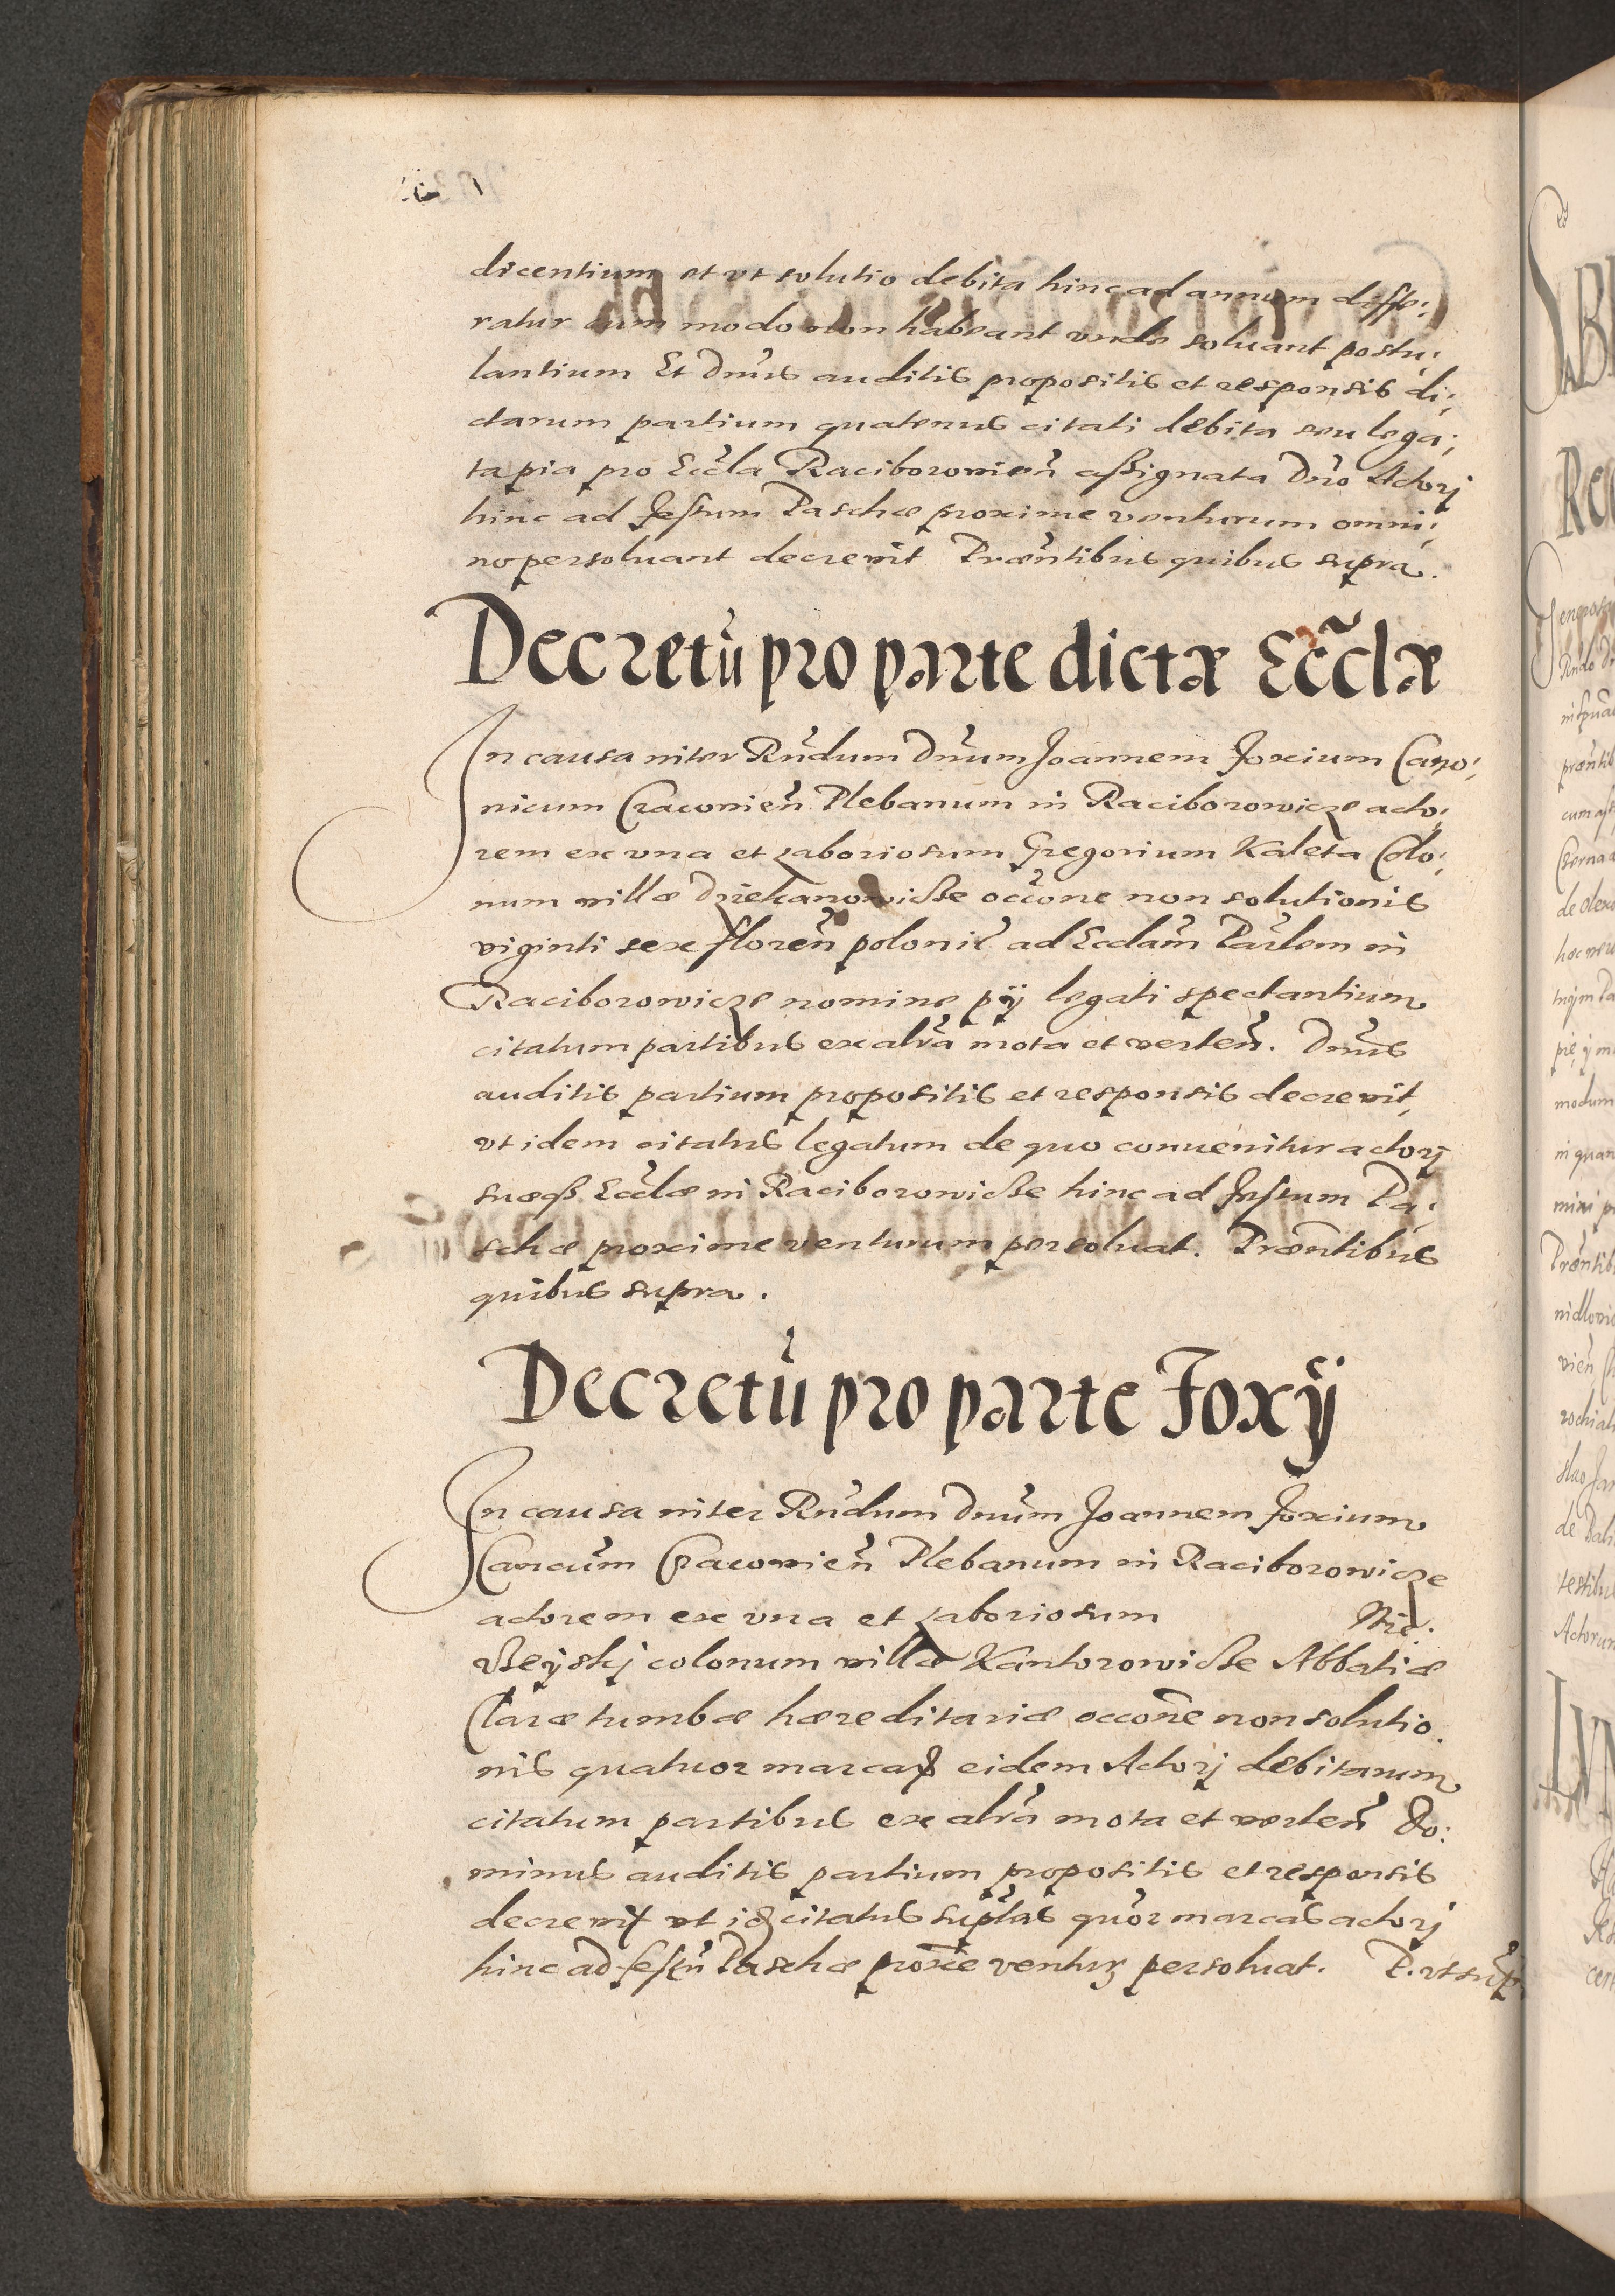 dicentium et vt solutio debita hinc ad annum diffe:
ratur cum modo non habeant vnde soluant postu:
lantium Et Dnūs auditis propositis et responsis di:
ctarum partium quatenus citati debita seu lega:
ta pia pro Eccla Raciborouien̄ aßignata Dno Actorj
hinc ad festum Paschæ proxime venturum omni:
no persoluant decreuit Præntibus quibus supra.
Decretū pro parte dictæ Ecclæ
In causa inter Rndum Dnum Joannem Foxium Cano:
nicum Cracouien̄ Plebanum in Raciborowicze acto:
rem ex vna et Laboriosum Gregorium Kaleta Colo:
num villæ Dziekanowicze occone non solutionis
viginti sex floren̄ polonic̄ ad Ecclam Parlem in
Raciborowicze nomine pij legati spectantium
citatum partibus ex altra mota et verten̄. Dnus
auditis partium propositis et responsis decreuit,
vt idem citatus legatum de quo conuenitur actorj
suæq3 Ecclæ in Raciborowicze hinc ad festum Pa:
schæ proxime venturum persoluat. Præntibus
quibus supra.
Decretū pro parte Foxij
In causa inter Rndum Dnum Joannem Foxium
Cancum Cracouien̄ Plebanum in Raciborowicze
actorem ex vna et Laboriosum
colonum villæ Kantorowicze Abbatiæ
Claræ tumbæ hæreditariæ occone non solutio.
nis quatuor marcaꝝ eidem Actorj debitarum
citatum partibus ex altra mota et verten̄ Do:
minus auditis partium propositis et responsis
decreuit vt citatus quor marcas actorj
hinc ad festū Paschæ proxie ventuꝝ persoluat. P. vt sup